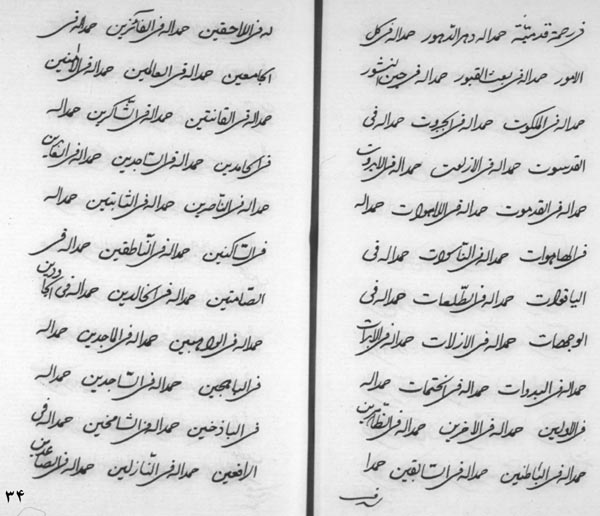 حمدا له دهر الدهور حمدا له فی کل
الامور حمدا له فی بعث القبور حمدا له فی حین النشور
حمدا له فی الملکوت حمدا له فی الجبروت حمدا له فی
القدسوت حمدا له فی الازلیت حمدا له فی
حمدا له فی القدموت حمدا له فی اللاهوات حمدا له
فی الهاهوات حمدا له فی الناسوات حمدا له فی
الیاقوات حمدا له فی الطلعات حمدا له فی
الوجهات حمدا له فی الازلات حمدا له فی
حمدا له فی البدوات حمدا له فی الختمات حمدا له
فی الاولین حمدا له فی الاخرین حمدا له فی الظاهرین
حمدا له فی الباطنین حمدا له فی السابقین حمدا
له فی اللاحقین حمدا له فی الفائزین حمدا له فی
الجامعین حمدا له فی العالمین حمدا له فی
حمدا له فی القانتین حمدا له فی الشاکرین حمدا له
فی الحامدین حمدا له فی الساجدین حمدا له فی
حمدا له فی الناصرین حمدا له فی الثابتین حمدا له
فی الساکنین حمدا له فی الناطقین حمدا له فی
الصامتین حمدا له فی الخالدین حمدا له فی
حمدا له فی الواهبین حمدا له فی الماجدین حمدا له
فی الباهجین حمدا له فی الساجدین حمدا له
فی الباذخین حمدا له فی الشامخین حمدا له فی
الرافعین حمدا له فی النازلین حمدا له فی الصاعدین
۳۴